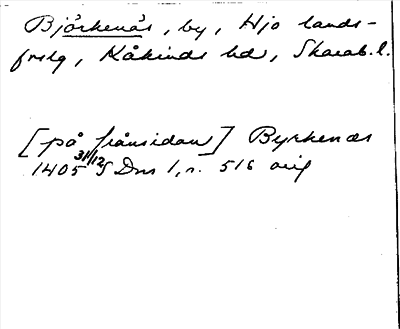 Björkenäs, by, Hjo lands-
frslg, Kåkinds hd, Skarab.l.
[på frånsidan] Byrkenæs
1405 31/12 S Dns 1, n. 516 orig